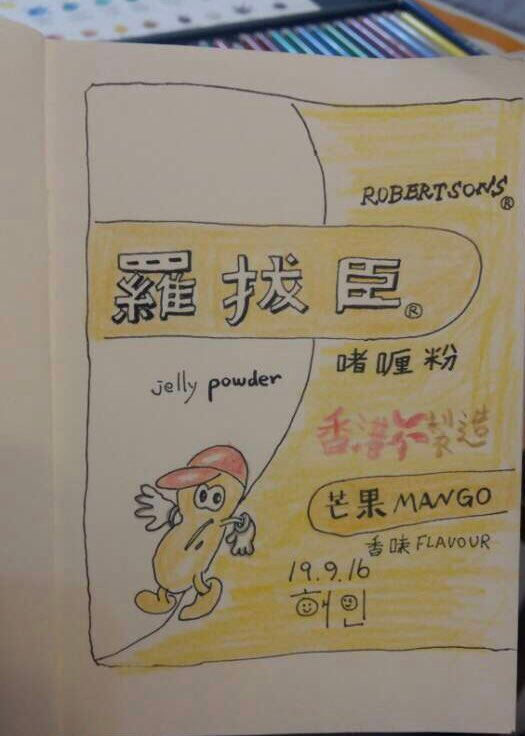 ROBERTSONS®
羅拔臣®
啫喱粉
jelly powder
香港製造
芒果 MANGO
香味 FLAVOUR
19.9.16